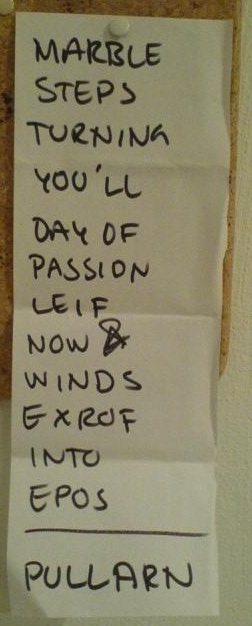 MARBLE
STEPS
TURNING
YOU'LL
DAY OF
PASSION
LEIF
NOW &
WINDS
EXROF
INTO
EPOS
PULLARN